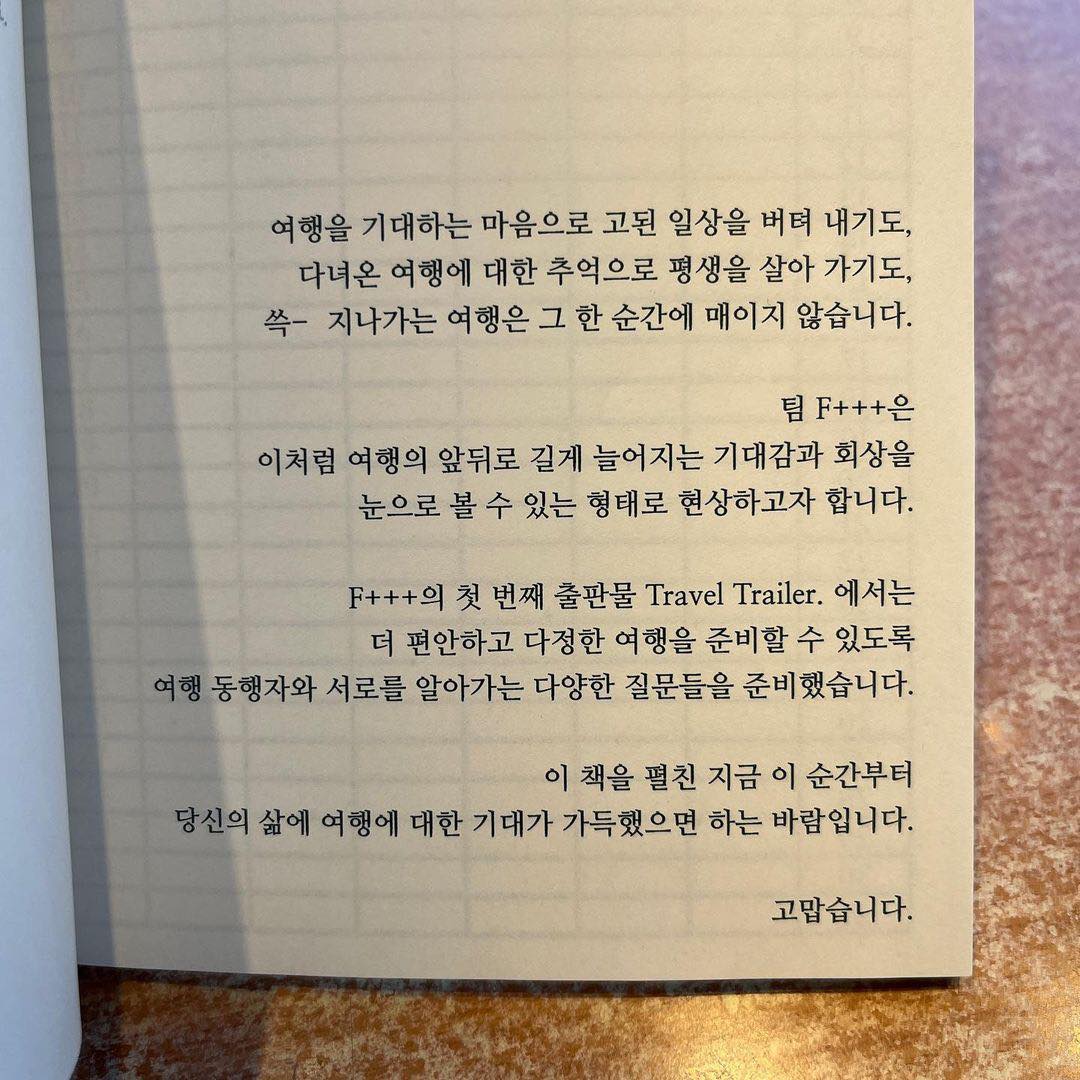 여행을 기대하는 마음으로 고된 일상을 버텨 내기도,
다녀온 여행에 대한 추억으로 평생을 살아 가기도,
쓱- 지나가는 여행은 그 한 순간에 매이지 않습니다.
팀 F+++은
이처럼 여행의 앞뒤로 길게 늘어지는 기대감과 회상을
눈으로 볼 수 있는 형태로 현상하고자 합니다.
F+++의 첫 번째 출판물 Travel Trailer. 에서는
더 편안하고 다정한 여행을 준비할 수 있도록
여행 동행자와 서로를 알아가는 다양한 질문들을 준비했습니다.
이 책을 펼친 지금 이 순간부터
당신의 삶에 여행에 대한 기대가 가득했으면 하는 바람입니다.
고맙습니다.